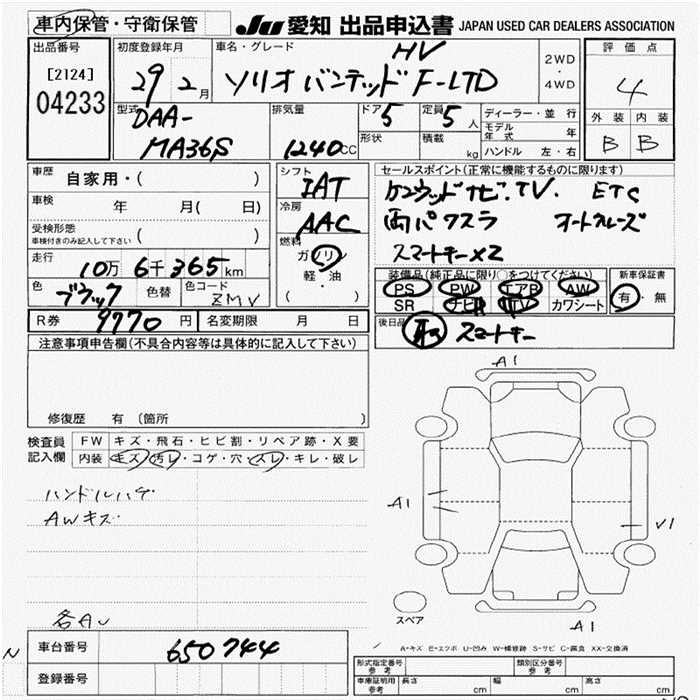 車内保管・守衛保管 JU 愛知 出品申込書 JAPAN USED CAR DEALERS ASSOCIATION
出品番号 [2124] 04233
初度登録年月 29 2月
車名・グレード HV ソリオ バンデッド F-LTD
2WD・4WD
評価点 4
外装 内装
B B
型式 DAA-
MA36S
排気量 1240cc
ドア 5
形状
定員 5人
積載 kg
ディーラー・並行
モデル年式 年
ハンドル 左・右
車歴 自家用・( )
車検 年 月( 日)
受検形態 ( )
車検付きのみ記入して下さい
走行 10万 6千 365km
色 ブラック 色替 色コード ZMV
シフト IAT
冷房 AAC
燃料 ガソリン
軽・油
( )
セールスポイント(正常に機能するものに限ります)
ケンウッドナビ.TV. ETC
両パワスラ オートクルーズ
スマートキー×2
装備品(純正品に限り○をつけてください)
PS PW エアB AW
SR ナビ TV カワシート
新車保証書
有・無
R券 9770円 名変期限 月 日
後日品 スマートキー
注意事項申告欄(不具合内容等は具体的に記入して下さい)
修復歴 有 (箇所 )
検査員記入欄
FW キズ・飛石・ヒビ割・リペア跡・X要
内装 キズ・汚レ・コゲ・穴・スレ・キレ・破レ
ハンドルハゲ
AWキズ
各AU
A1
A1
V1
A1
スペア
A-キズ E-エクボ U-凹み W-補修跡 S-サビ C-腐食 XX-交換済
N
車台番号 650744
登録番号
形式指定番号 参考
類別区分番号 参考
車庫証明用 参考 長さ cm 幅 cm 高さ cm